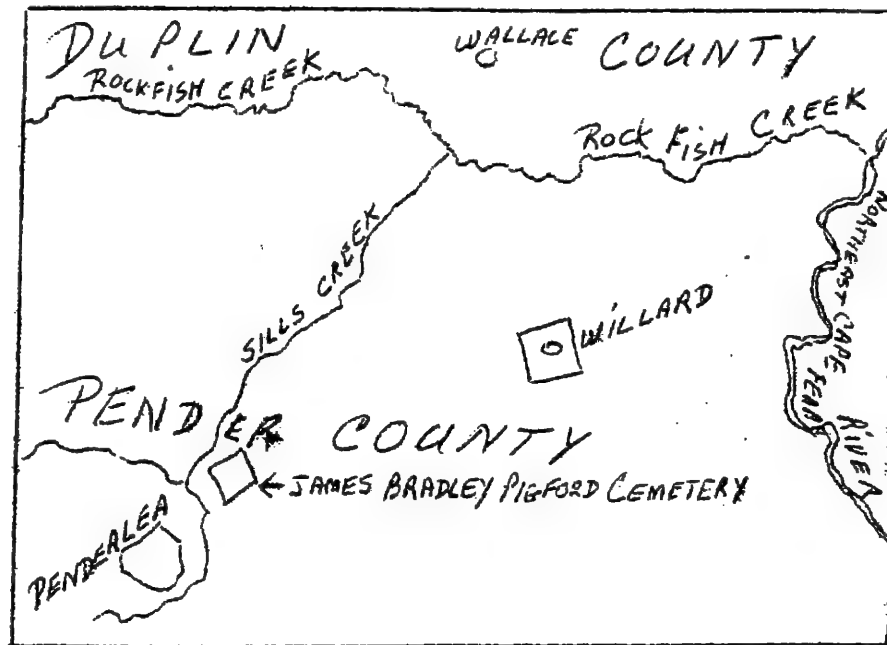 DUPLIN COUNTY
WALLACE
ROCKFISH CREEK
ROCK FISH CREEK
NORTHEAST CAPE FEAR RIVER
SILLS CREEK
WILLARD
PENDER COUNTY
← JAMES BRADLEY PIGFORD CEMETERY
PENDERLEA